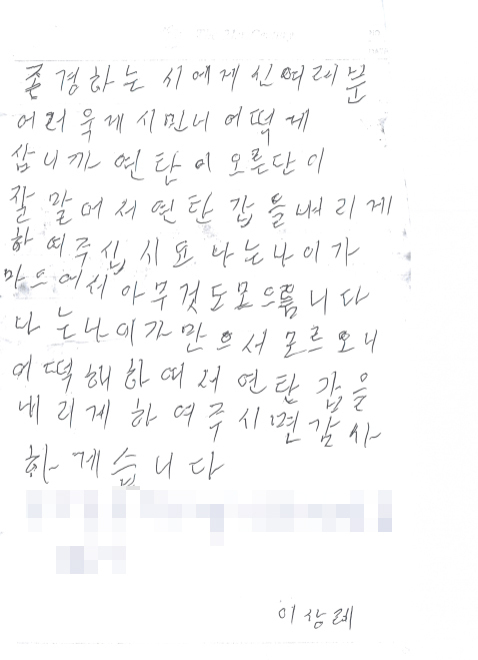 존경하는 시에게신여러분
어러욱게시민니어떡게
삼니까 연탄이오른단이
잘말어서연탄갑을내리게
하여주십시요 나는나이가
만으어서아무것도모으름니다
나는나이가만으서모르오니
어떡해하여서연탄갑을
내리게하여주시면감사
하게습니다
이상례